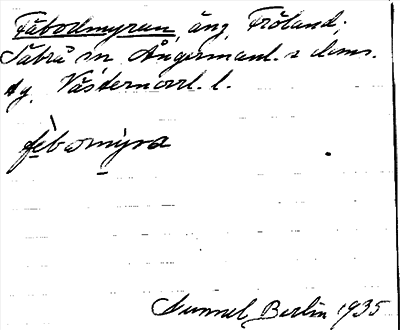 Fäbodmyran, äng, Fröland,
Säbrå sn Ångermanl. s doms.
tg. Västernorrl. l.
fèbomýra
Gunnel Berlin 1935